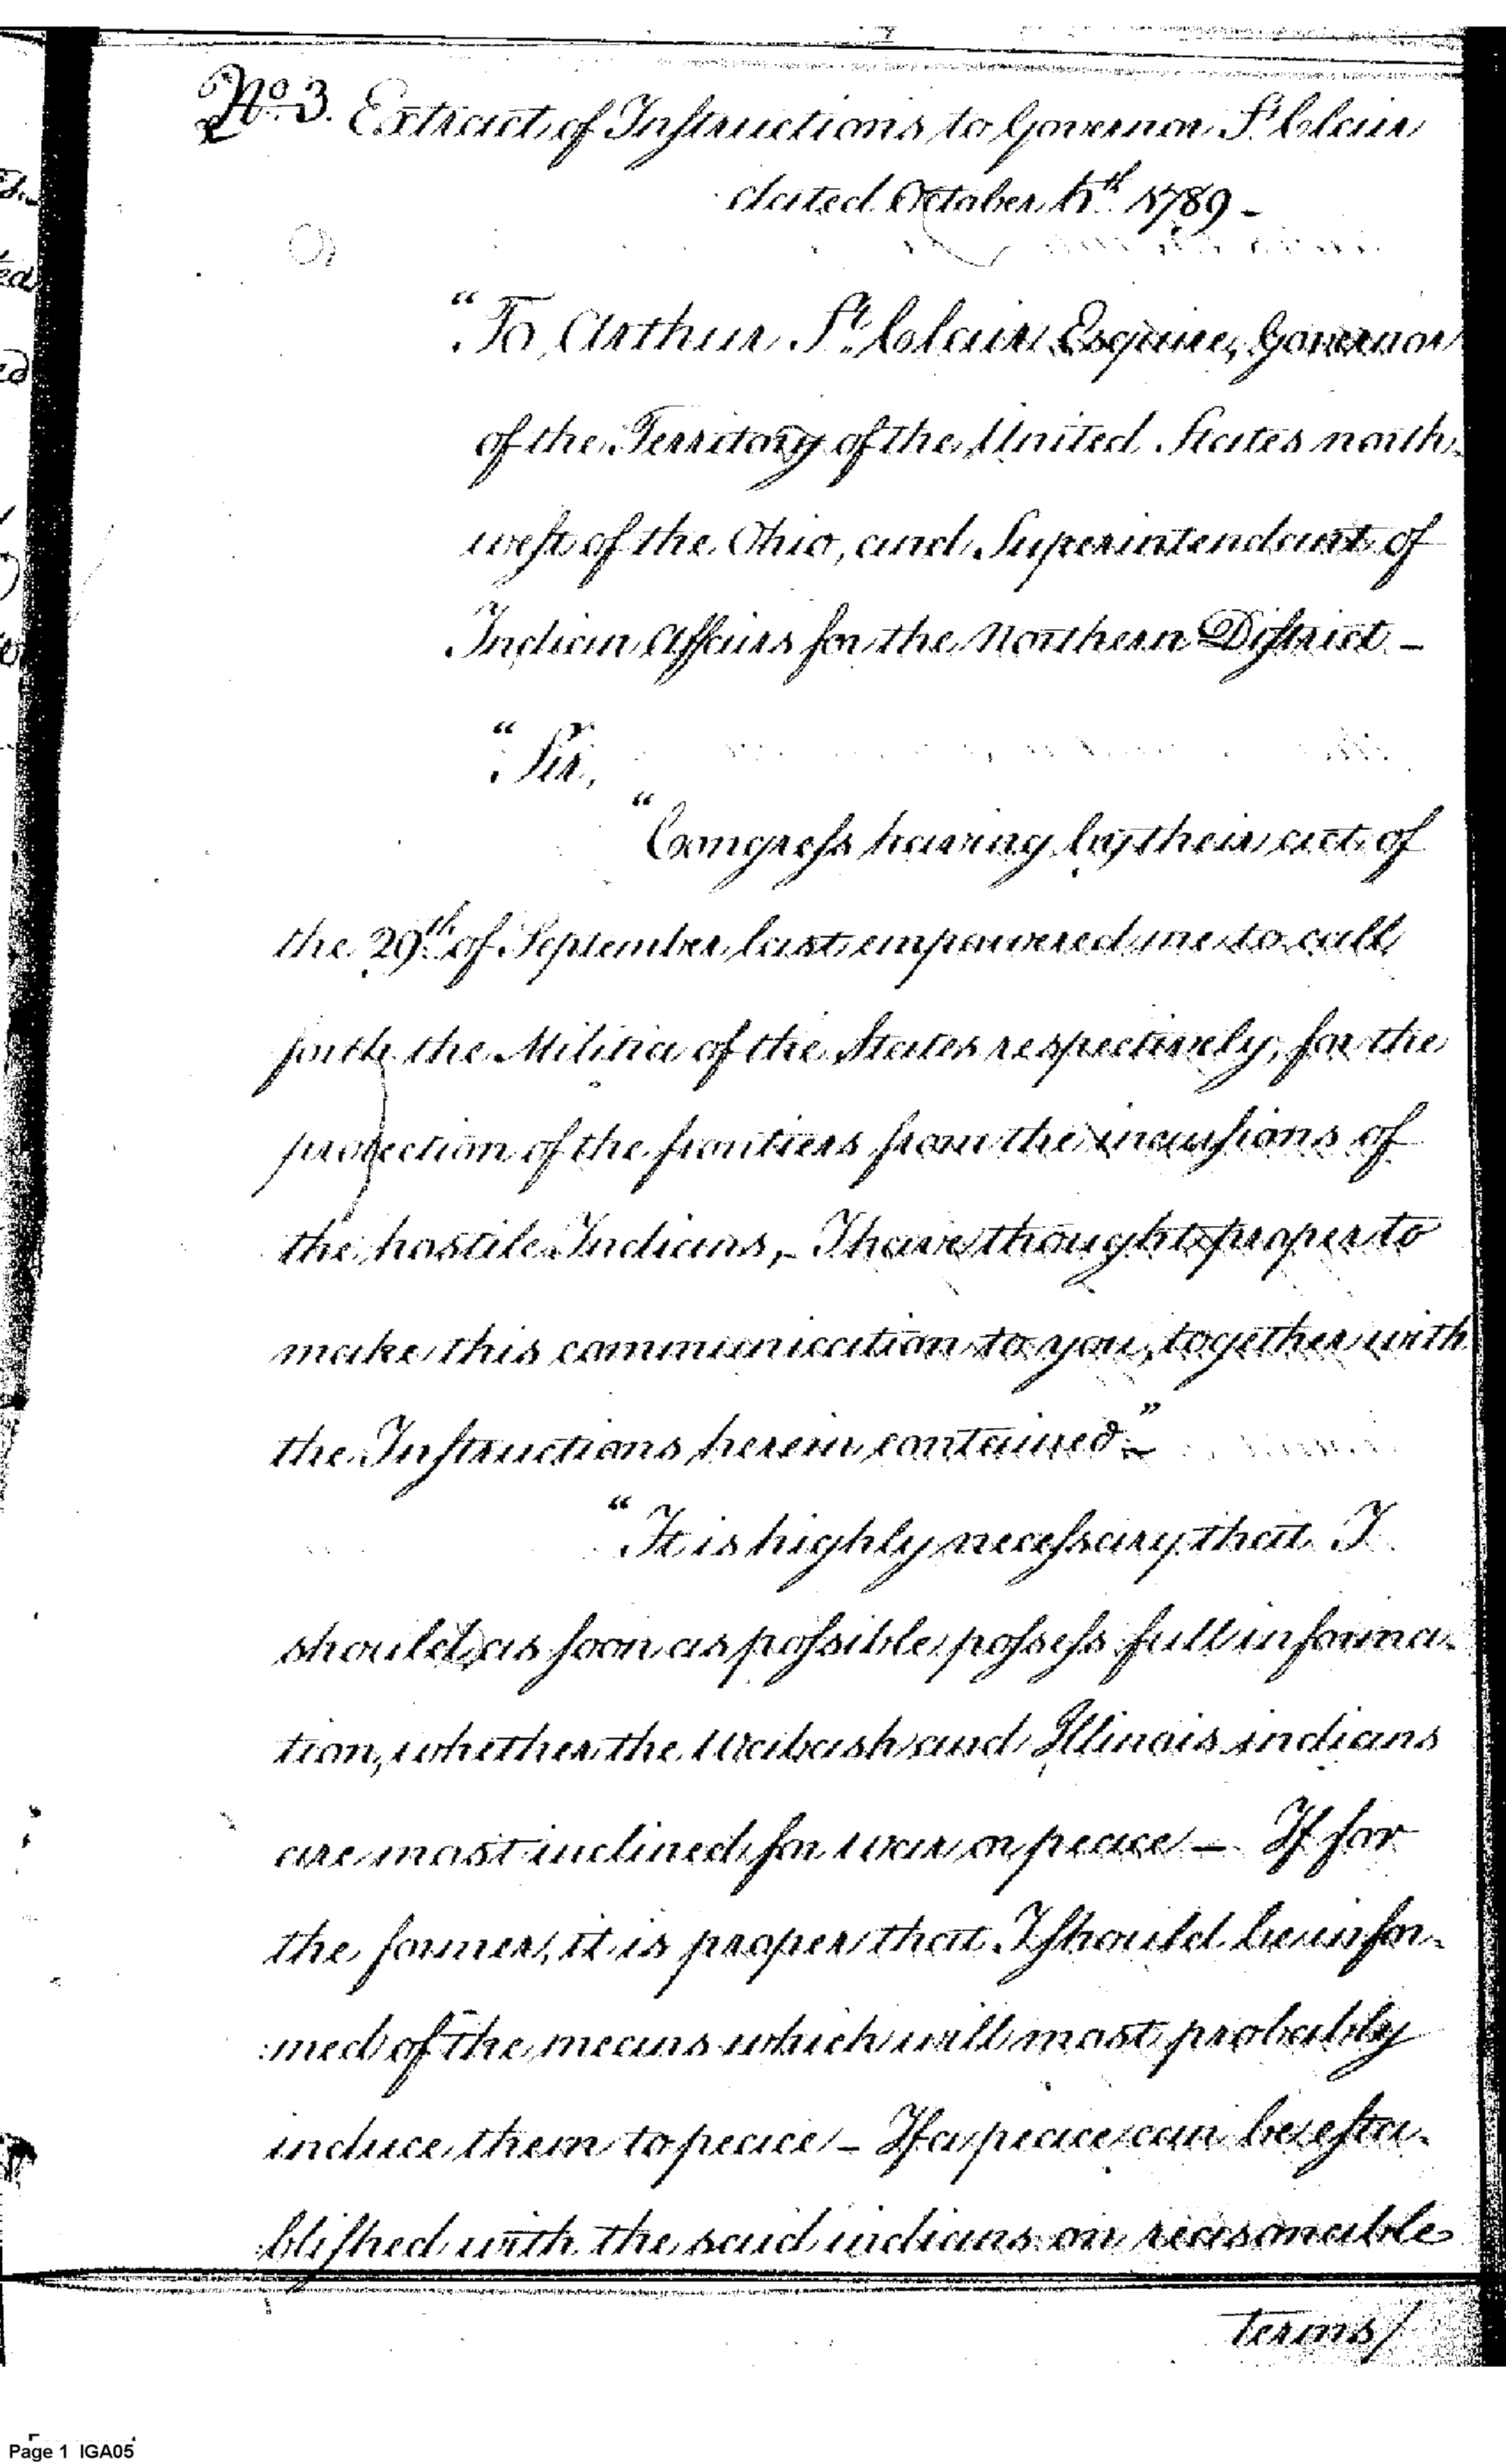 No. 3. Extract of Instructions to Governor St Clair
dated October 6th 1789 -
"To Arthur St. Clair Esquire, Governor
of the Territory of the United States north-
west of the Ohio, and Superintendant of
Indian Affairs for the Northern District -
"Sir,
"Congress having by their act of
the 29th of September last empowered me to call
forth the Militia of the States respectively, for the
protection of the frontiers from the incursions of
the hostile Indians, - I have thought proper to
make this communication to you, together with
the Instructions herein contained." -
"It is highly necessary that I
should, as soon as possible possess full informa-
tion, whether the Wabash and Illinois indians
are most inclined for war or peace - If for
the former, it is proper that I should be infor-
:med of the means which will most probably
induce them to peace - If a peace can be esta-
blished with the said indians on reasonable
terms/
Page 1 IGA05